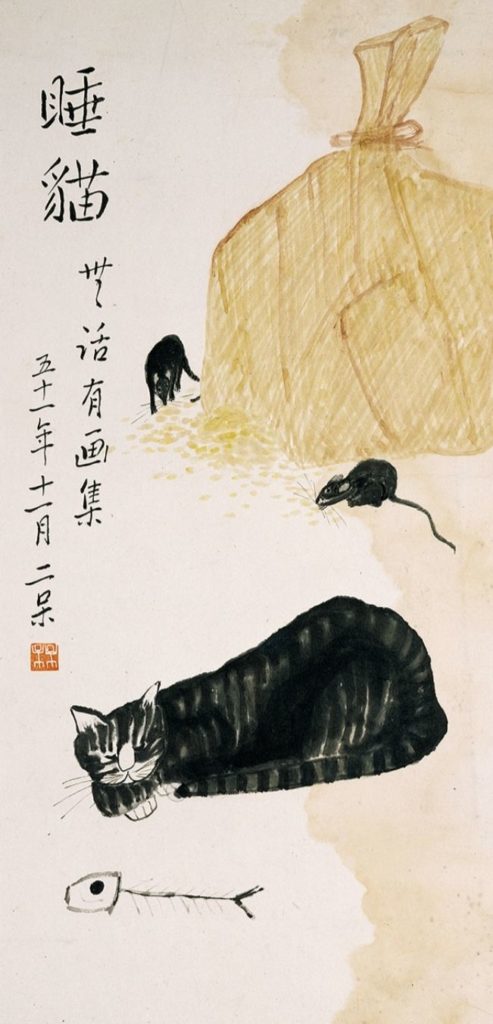 睡貓
無话有画集
五十一年十一月 二呆